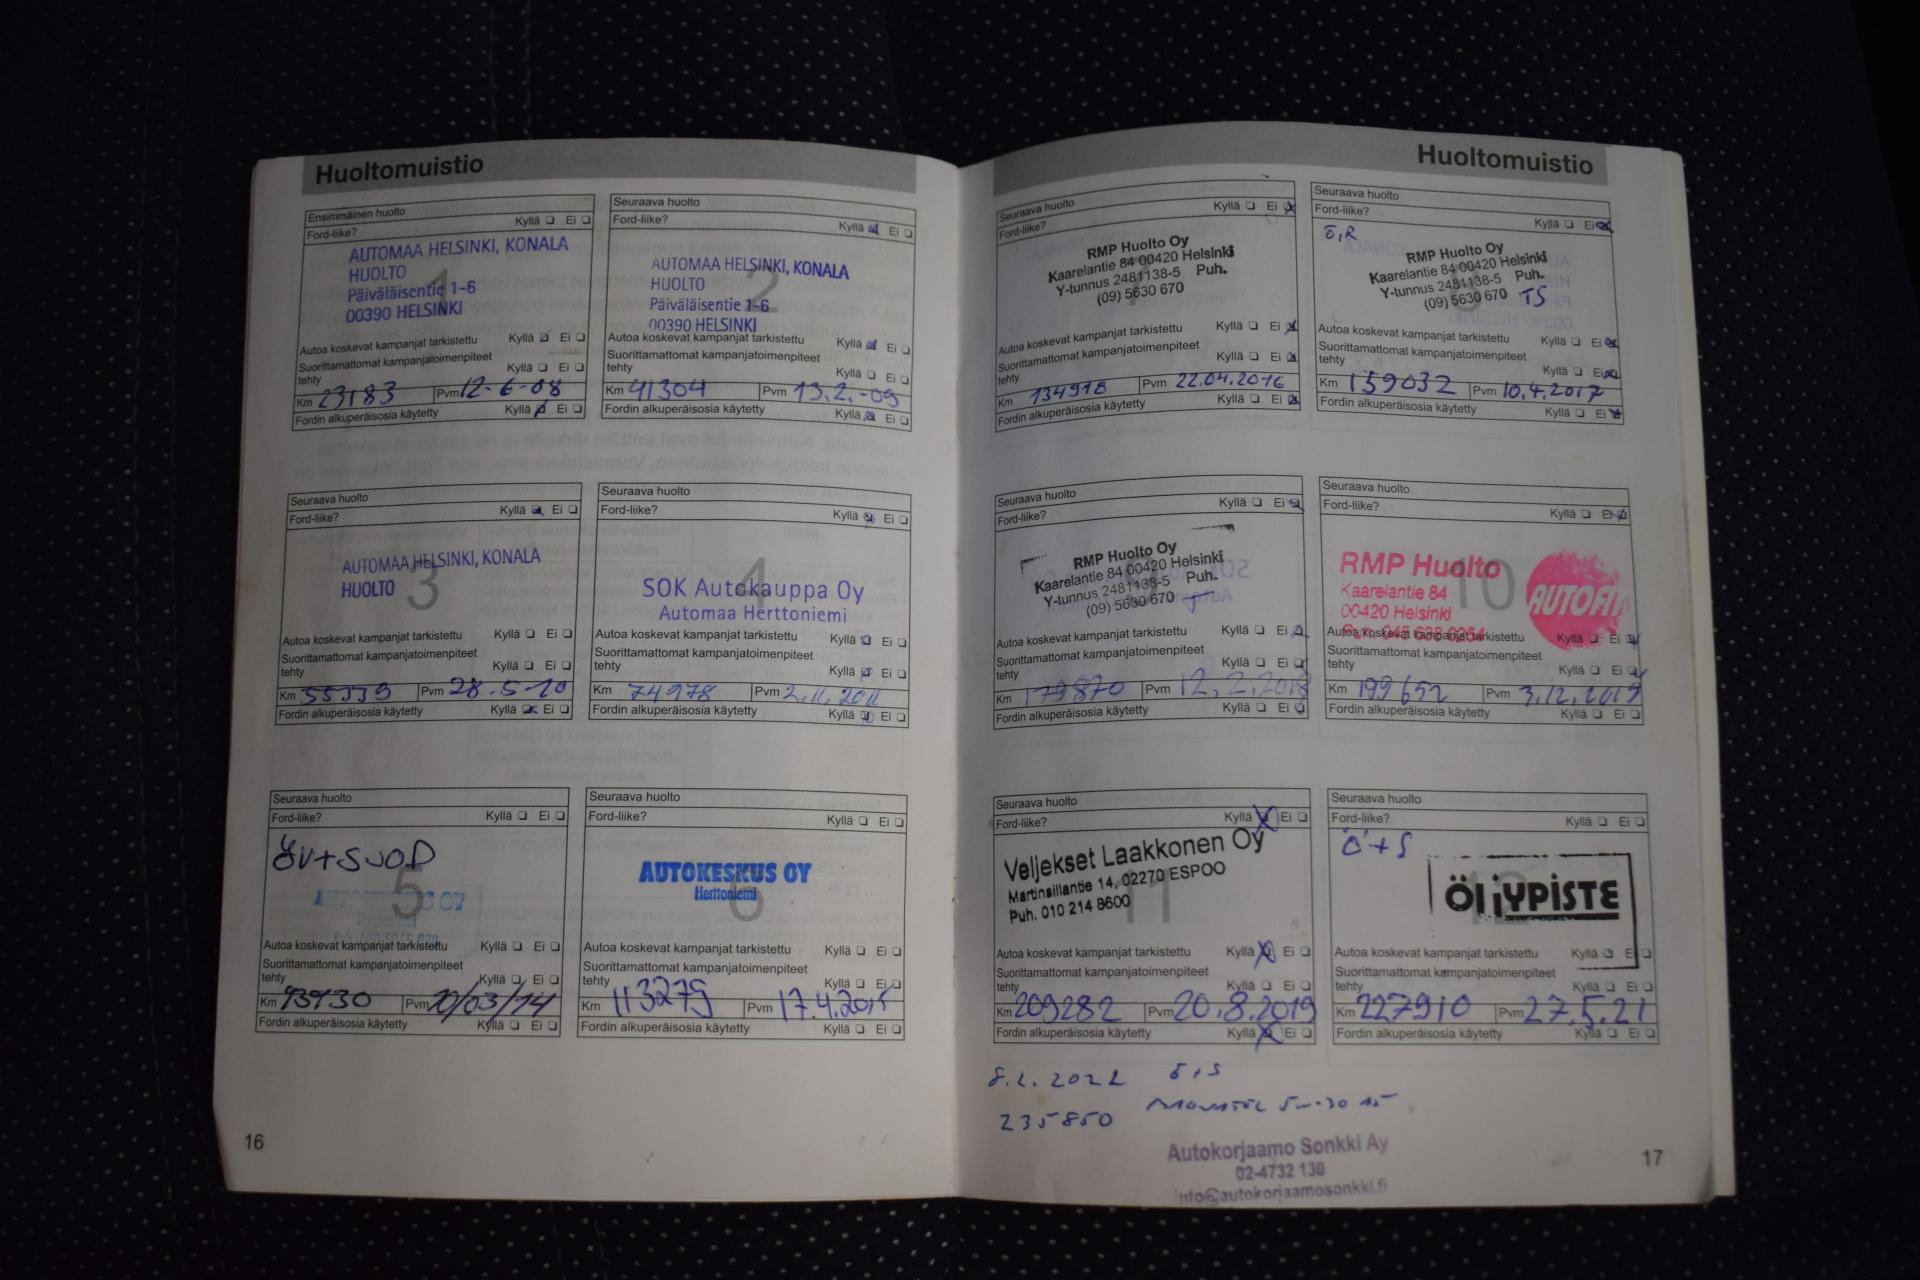 Huoltomuistio
Ensimmäinen huolto
Ford-liike? Kyllä Ei
AUTOMAA HELSINKI, KONALA
HUOLTO
Päiväläisentie 1-6
00390 HELSINKI
1
Autoa koskevat kampanjat tarkistettu Kyllä Ei
Suorittamattomat kampanjatoimenpiteet
tehty Kyllä Ei
Km 23183 Pvm 12-6-08
Fordin alkuperäisosia käytetty Kyllä Ei
Seuraava huolto
Ford-liike? Kyllä Ei
AUTOMAA HELSINKI, KONALA
HUOLTO
Päiväläisentie 1-6
00390 HELSINKI
2
Autoa koskevat kampanjat tarkistettu Kyllä Ei
Suorittamattomat kampanjatoimenpiteet
tehty Kyllä Ei
Km 41304 Pvm 13.2.-09
Fordin alkuperäisosia käytetty Kyllä Ei
Seuraava huolto
Ford-liike? Kyllä Ei
AUTOMAA HELSINKI, KONALA
HUOLTO
3
Autoa koskevat kampanjat tarkistettu Kyllä Ei
Suorittamattomat kampanjatoimenpiteet
tehty Kyllä Ei
Km 55339 Pvm 28.5-10
Fordin alkuperäisosia käytetty Kyllä Ei
Seuraava huolto
Ford-liike? Kyllä Ei
4
SOK Autokauppa Oy
Automaa Herttoniemi
Autoa koskevat kampanjat tarkistettu Kyllä Ei
Suorittamattomat kampanjatoimenpiteet
tehty Kyllä Ei
Km 74978 Pvm 2.11.2011
Fordin alkuperäisosia käytetty Kyllä Ei
Seuraava huolto
Ford-liike? Kyllä Ei
ÖV+SUOD
5
Autoa koskevat kampanjat tarkistettu Kyllä Ei
Suorittamattomat kampanjatoimenpiteet
tehty Kyllä Ei
Km 93930 Pvm 20/03/14
Fordin alkuperäisosia käytetty Kyllä Ei
Seuraava huolto
Ford-liike? Kyllä Ei
AUTOKESKUS OY
Herttoniemi
6
Autoa koskevat kampanjat tarkistettu Kyllä Ei
Suorittamattomat kampanjatoimenpiteet
tehty Kyllä Ei
Km 113279 Pvm 17.4.2015
Fordin alkuperäisosia käytetty Kyllä Ei
16
Huoltomuistio
Seuraava huolto
Ford-liike? Kyllä Ei
RMP Huolto Oy
Kaarelantie 84 00420 Helsinki
Y-tunnus 2481138-5 Puh.
(09) 5630 670
Autoa koskevat kampanjat tarkistettu Kyllä Ei
Suorittamattomat kampanjatoimenpiteet
tehty Kyllä Ei
Km 134918 Pvm 22.04.2016
Fordin alkuperäisosia käytetty Kyllä Ei
Seuraava huolto
Ford-liike? Kyllä Ei
Ö,R
RMP Huolto Oy
Kaarelantie 84 00420 Helsinki
Y-tunnus 2481138-5 Puh.
(09) 5630 670 TS
Autoa koskevat kampanjat tarkistettu Kyllä Ei
Suorittamattomat kampanjatoimenpiteet
tehty Kyllä Ei
Km 159032 Pvm 10.4.2017
Fordin alkuperäisosia käytetty Kyllä Ei
Seuraava huolto
Ford-liike? Kyllä Ei
RMP Huolto Oy
Kaarelantie 84 00420 Helsinki
Y-tunnus 2481138-5 Puh.
(09) 5630 670
9
Autoa koskevat kampanjat tarkistettu Kyllä Ei
Suorittamattomat kampanjatoimenpiteet
tehty Kyllä Ei
Km 179870 Pvm 12.2.2018
Fordin alkuperäisosia käytetty Kyllä Ei
Seuraava huolto
Ford-liike? Kyllä Ei
RMP Huolto
Kaarelantie 84
00420 Helsinki
10
AUTOFIT
Autoa koskevat kampanjat tarkistettu Kyllä Ei
Suorittamattomat kampanjatoimenpiteet
tehty Kyllä Ei
Km 199652 Pvm
Fordin alkuperäisosia käytetty Kyllä Ei
Seuraava huolto
Ford-liike? Kyllä Ei
Veljekset Laakkonen Oy
Martinsillantie 14, 02270 ESPOO
Puh. 010 214 8600
11
Autoa koskevat kampanjat tarkistettu Kyllä Ei
Suorittamattomat kampanjatoimenpiteet
tehty Kyllä Ei
Km 209282 Pvm 20.8.2019
Fordin alkuperäisosia käytetty Kyllä Ei
Seuraava huolto
Ford-liike? Kyllä Ei
Ö+S
ÖLJYPISTE
12
Autoa koskevat kampanjat tarkistettu Kyllä Ei
Suorittamattomat kampanjatoimenpiteet
tehty Kyllä Ei
Km 227910 Pvm 27.5.21
Fordin alkuperäisosia käytetty Kyllä Ei
8.2.2022 Ö,S
235850 5W-30
Autokorjaamo Sonkki Ay
02-4732 130
info@autokorjaamosonkki.fi
17